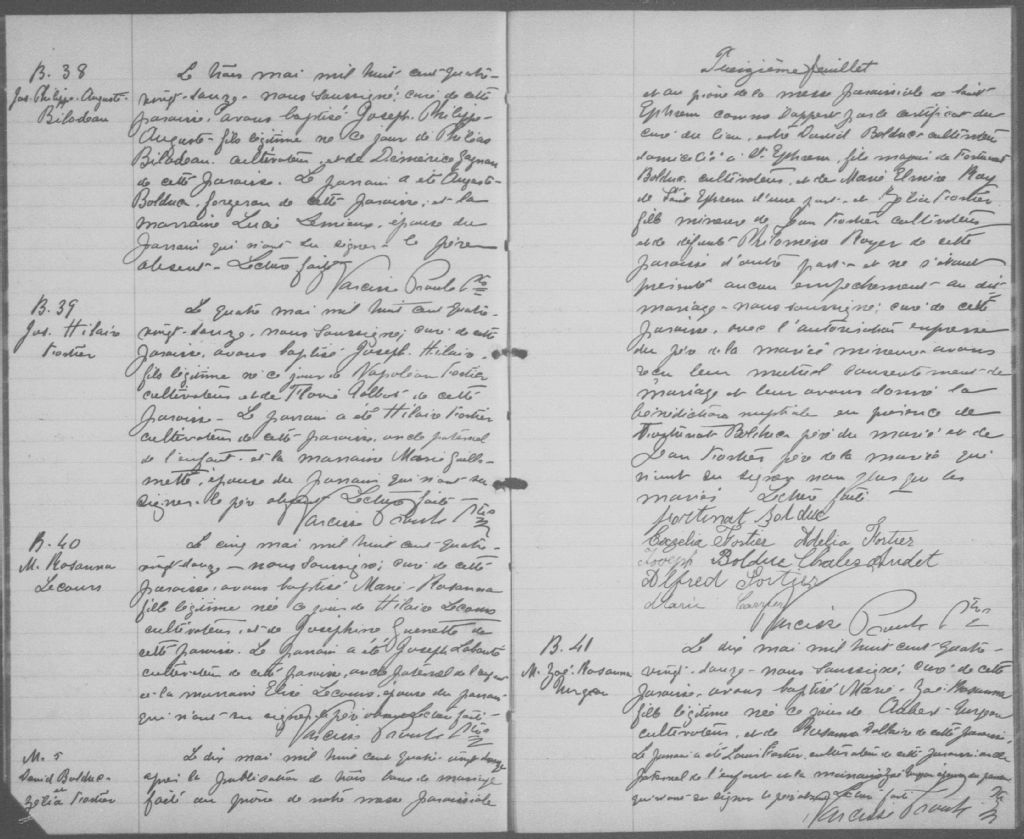 B. 38
Jos. Philippe-Auguste-
Bilodeau
Le trois mai mil huit cent quatre-
vingt-douze - nous soussigné; curé de cette
paroisse, avons baptisé Joseph-Philippe-
Auguste-fils légitime né ce jour de Philéas
Bilodeau cultivateur, et de Démérice Gagnon
de cette paroisse. Le parrain a été Auguste-
Bolduc, forgeron de cette paroisse, et la
marraine Lucie Lemieux, épouse du
parrain qui n'ont su signer - le père
absent - Lecture faite
Narcisse Proulx Ptre
B. 39
Jos. Hilaire
Fortier
Le quatre mai mil huit cent quatre-
vingt-douze, nous soussigné; curé de cette
paroisse, avons baptisé Joseph-Hilaire-
fils légitime né ce jour de Napoléon Fortier
cultivateur et de Flavie Talbot de cette
paroisse - Le parrain a été Hilaire Fortier
cultivateur de cette paroisse, oncle paternel
de l'enfant et la marraine Marie Guille-
mette, épouse du parrain qui n'ont su
signer. le père absent Lecture faite
Narcisse Proulx Ptre
B. 40
M. Rosanna
Lecours
Le cinq mai mil huit cent quatre-
vingt-douze - nous soussigné; curé de cette
paroisse, avons baptisé Marie-Rosanna
fille légitime née ce jour de Hilaire Lecours
cultivateur, et de Joséphine Guenette de
cette paroisse. Le parrain a été Joseph
cultivateur de cette paroisse, oncle paternel de l'enfant
et la marraine Elise Lecours, épouse du parrain
qui n'ont su signer. le père absent Lecture faite -
Narcisse Proulx Ptre
M. 5
David Bolduc-
et
Zélia Fortier
Le dix mai mil huit cent quatre-vingt-douze
après la publication de trois bans de mariage
faite au prône de notre messe paroissiale
Treizième feuillet
et au prône de la messe paroissiale de Saint
Ephrem comme l'appert par le certificat du
curé du lieu, entre David Bolduc cultivateur
domicilié à St. Ephrem, fils majeur de Fortunat
Bolduc cultivateur, et de Marie Elmire Roy
de Saint Ephrem d'une part - et Zélia Fortier
fille mineure de Jean Fortier cultivateur
et de défunte Philomène Royer de cette
paroisse d'autre part - et ne s'étant
présenté aucun empêchement au dit
mariage - nous soussigné; curé de cette
paroisse, avec l'autorisation expresse
du père de la mariée mineure avons
reçu leur mutuel consentement de
mariage et leur avons donné la
bénédiction nuptiale en présence de
Fortunat Bolduc père du marié et de
Jean Fortier père de la mariée qui
n'ont su signer non plus que les
mariés Lecture faite
Fortunat Bolduc
Exzelia Fortier Adélia Fortier
Joseph Bolduc Charles Audet
Alfred Fortier
Marie
Narcisse Proulx Ptre
B. 41
M. Zoé-Rosanna
Turgeon
Le dix mai mil huit cent quatre-
vingt-douze - nous soussigné; curé de cette
paroisse, avons baptisé Marie-Zoé-Rosanna
fille légitime née ce jour de Turgeon
cultivateur, et de Rosanna de cette paroisse.
Le parrain a été Louis Fortier, cultivateur de cette paroisse oncle
paternel de l'enfant et la marraine Zoé Turgeon épouse du parrain
qui n'ont su signer le père absent Lecture faite
Narcisse Proulx Ptre